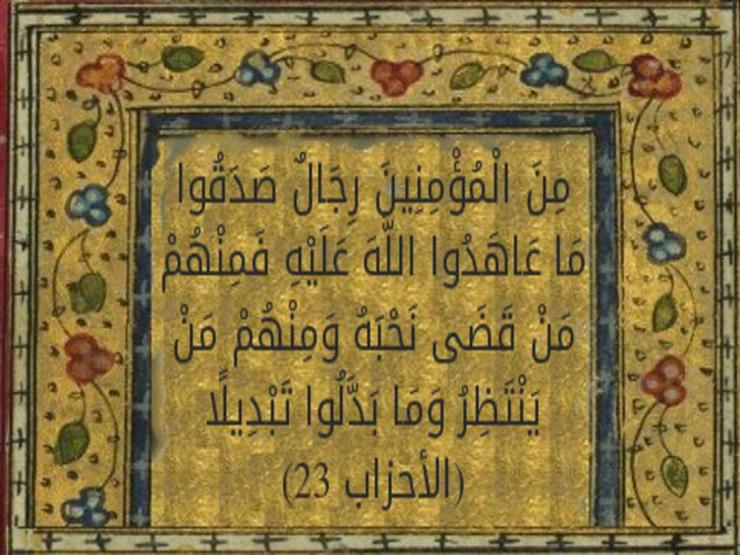 مِنَ الْمُؤْمِنِينَ رِجَالٌ صَدَقُوا
مَا عَاهَدُوا اللَّهَ عَلَيْهِ فَمِنْهُمْ
مَنْ قَضَى نَحْبَهُ وَمِنْهُمْ مَنْ
يَنْتَظِرُ وَمَا بَدَّلُوا تَبْدِيلًا
(الأحزاب 23)